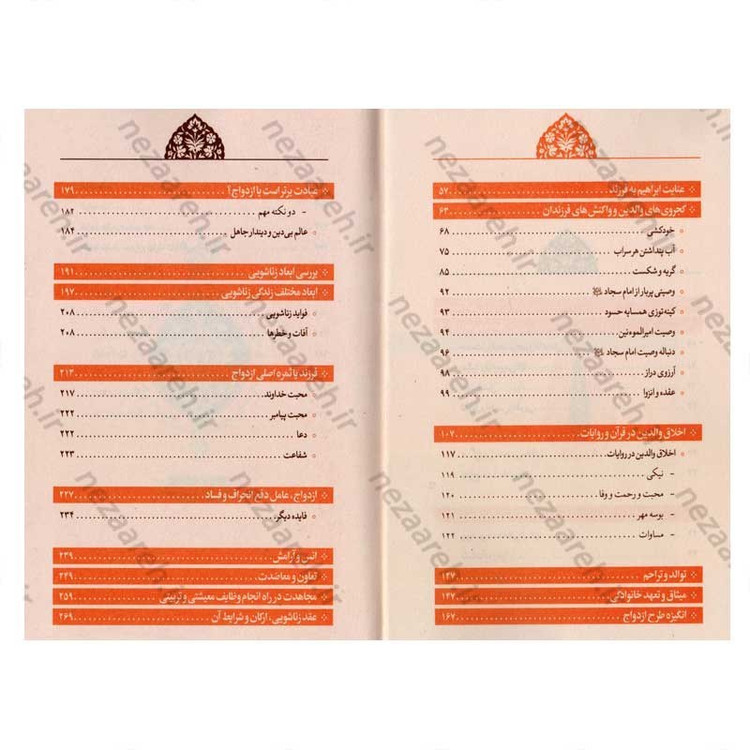 عنایت ابراهیم به فرزند ۵۷
کجروی‌های والدین و واکنش‌های فرزندان ۶۳
خودکشی ۶۸
آب پنداشتن هر سراب ۷۵
گریه و شکست ۸۵
وصیتی پربار از امام سجاد ۹۲
کینه توزی همسایه حسود ۹۳
وصیت امیرالموه نین ۹۴
دنباله وصیت امام سجاد ۹۶
آرزوی دراز ۹۸
عقده و انزوا ۹۹
اخلاق والدین در قرآن و روایات ۱۰۷
اخلاق والدین در روایات ۱۱۷
- نیکی ۱۱۹
- محبت و رحمت و وفا ۱۲۰
- بوسه مهر ۱۲۱
- مساوات ۱۲۲
توالد و تراحم ۱۳۷
میثاق و تعهد خانوادگی ۱۴۷
انگیزه طرح ازدواج ۱۶۷
عبادت برتر است یا ازدواج؟ ۱۷۹
- دو نکته مهم ۱۸۲
عالم بی‌دین و دیندار جاهل ۱۸۴
بررسی ابعاد زناشویی ۱۹۱
ابعاد مختلف زندگی زناشویی ۱۹۷
فواید زناشویی ۲۰۸
آفات و خطرها ۲۰۸
فرزند یا ثمره اصلی ازدواج ۲۱۳
محبت خداوند ۲۱۷
محبت پیامبر ۲۲۲
دعا ۲۲۲
شفاعت ۲۲۳
ازدواج، عامل دفع انحراف و فساد ۲۲۷
فایده دیگر ۲۳۴
انس و آرامش ۲۳۹
تعاون و معاضدت ۲۴۹
مجاهدت در راه انجام وظایف معیشتی و تربیتی ۲۵۹
عقد زناشویی، ارکان و شرایط آن ۲۶۹
nezaareh.ir